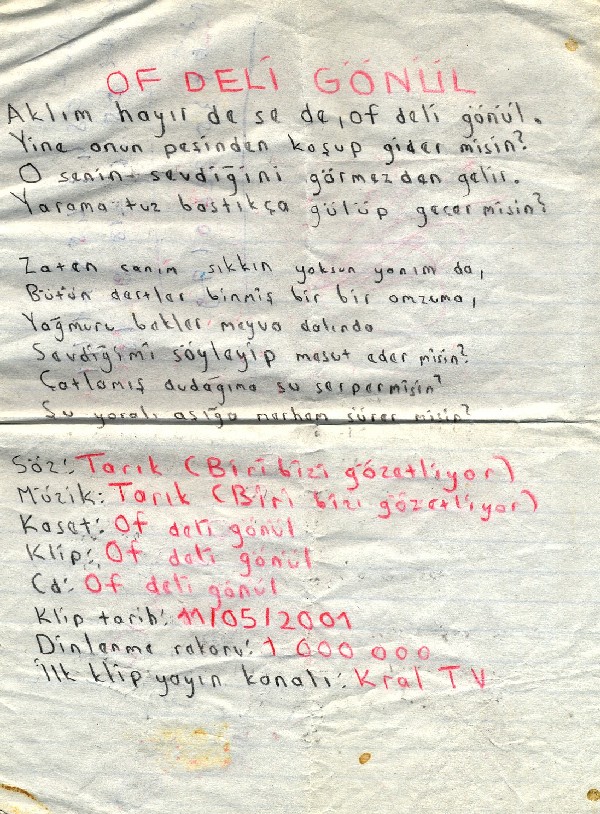 OF DELİ GÖNÜL
Aklım hayır de se de, of deli gönül.
Yine onun peşinden koşup gider misin?
O senin sevdiğini görmezden gelir.
Yarama tuz bastıkça gülüp geçer misin?
Zaten canım sıkkın yoksun yanım da,
Bütün dertler binmiş bir bir omzuma,
Yağmuru bekler meyva dalında
Sevdiğimi söyleyip mesut eder misin?
Çatlamış dudağıma su serpermisin?
Şu yaralı aşığa merhem sürer misin?
Söz: Tarık (Biri bizi gözetliyor)
Müzik: Tarık (Biri bizi gözetliyor)
Kaset: Of deli gönül
Klip: Of deli gönül
Cd: Of deli gönül
Klip tarih: 11/05/2001
Dinlenme rekoru: 1 000 000
İlk klip yayın kanalı: Kral TV